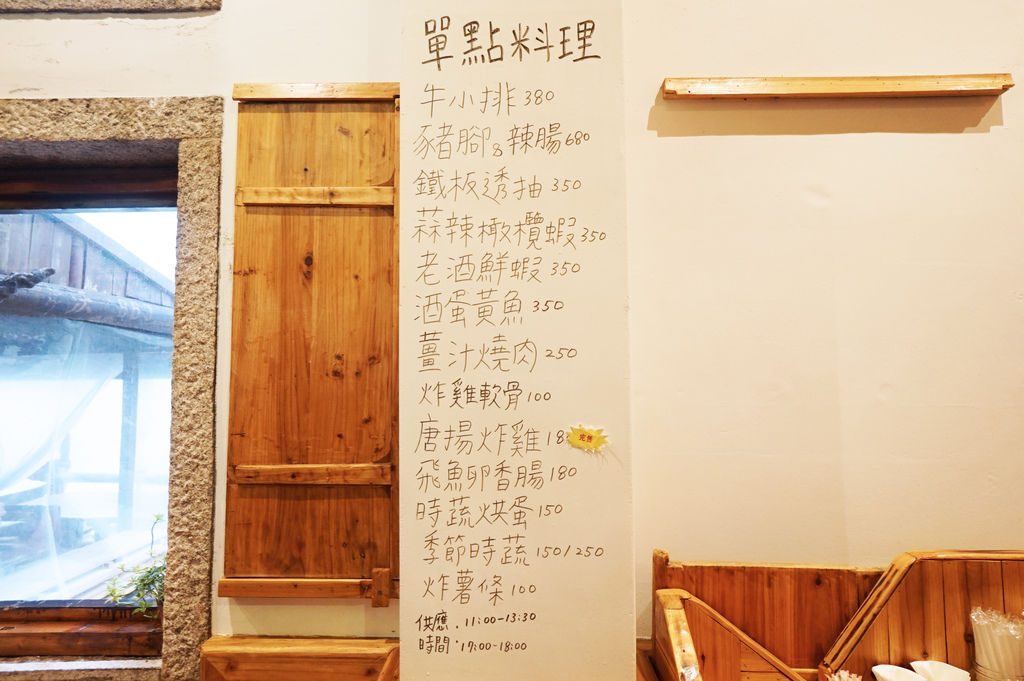 單點料理
牛小排380
豬腳&辣腸680
鐵板透抽350
蒜辣橄欖蝦350
老酒鮮蝦350
酒蛋黃魚350
薑汁燒肉250
炸雞軟骨100
唐揚炸雞18 完售
飛魚卵香腸180
時蔬烘蛋150
季節時蔬150/250
炸薯條100
供應:11:00-13:30
時間:17:00-18:00